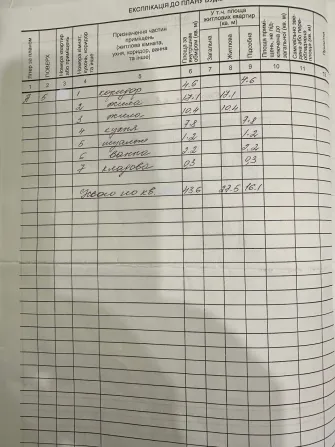 ЕКСПЛІКАЦІЯ ДО ПЛАНУ БУД
Літер за планом
ПОВЕРХ
Номери квартир або приміщень
Номери кімнат, кухонь, коридор та інше
Призначення частин приміщень (житлова кімната, кухня, коридор, ванна та інше)
Площа по внутрішнім обміром (кв. м)
У т.ч. площа житлових квартир (кв. м)
Загальна
Житлова
Підсобна
1 2 3 4 5 6 7 8 9 10 11
6 1 коридор 4.6 4.6
2 жила 17.1 17.1
3 жила 10.4 10.4
4 кухня 7.8 7.8
5 туалет 1.2 1.2
6 ванна 2.2 2.2
7 кладова 0.3 0.3
Усього по кв. 43.6 27.5 16.1